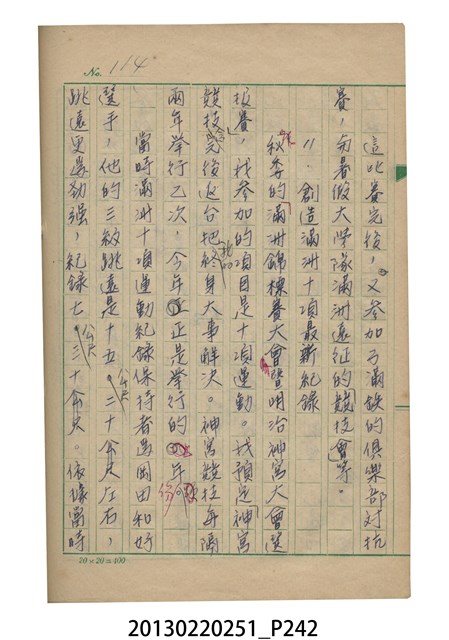 No. 114
這些賽完後，又參加了滿鉄的俱樂部対抗
賽，与暑假大學隊滿洲遠征的競技會等。
11．創造滿洲十項最新紀錄
秋季的滿洲錦標賽大會暨明治神宮大會選
拔賽，我參加的項目是十項運動。我預定神宮
競技會完後返台把我的終身大事解決。神宮競技每隔
兩年举行乙次，今年正是举行的年份。
當時滿洲十項運動紀錄保持者為岡田和好
選手，他的三級跳遠是十五公尺二十余左右，
跳遠更為劲强，紀錄七公尺三十余。依據當時
20×20=400
20130220251_P242